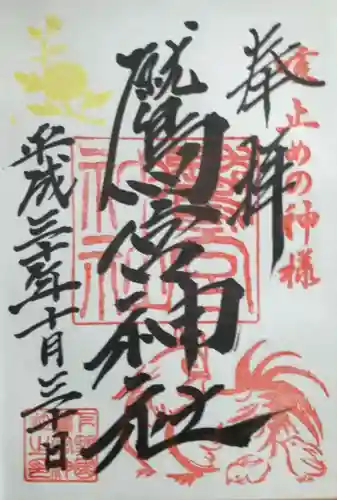 奉拝
止めの神様
鷲宮神社
平成三十年十月三十日